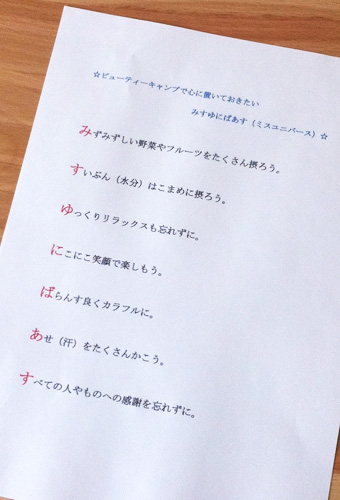 ☆ビューティーキャンプで心に置いておきたい
みすゆにばあす（ミスユニバース）☆
みずみずしい野菜やフルーツをたくさん摂ろう。
すいぶん（水分）はこまめに摂ろう。
ゆっくりリラックスも忘れずに。
にこにこ笑顔で楽しもう。
ばらんす良くカラフルに。
あせ（汗）をたくさんかこう。
すべての人やものへの感謝を忘れずに。